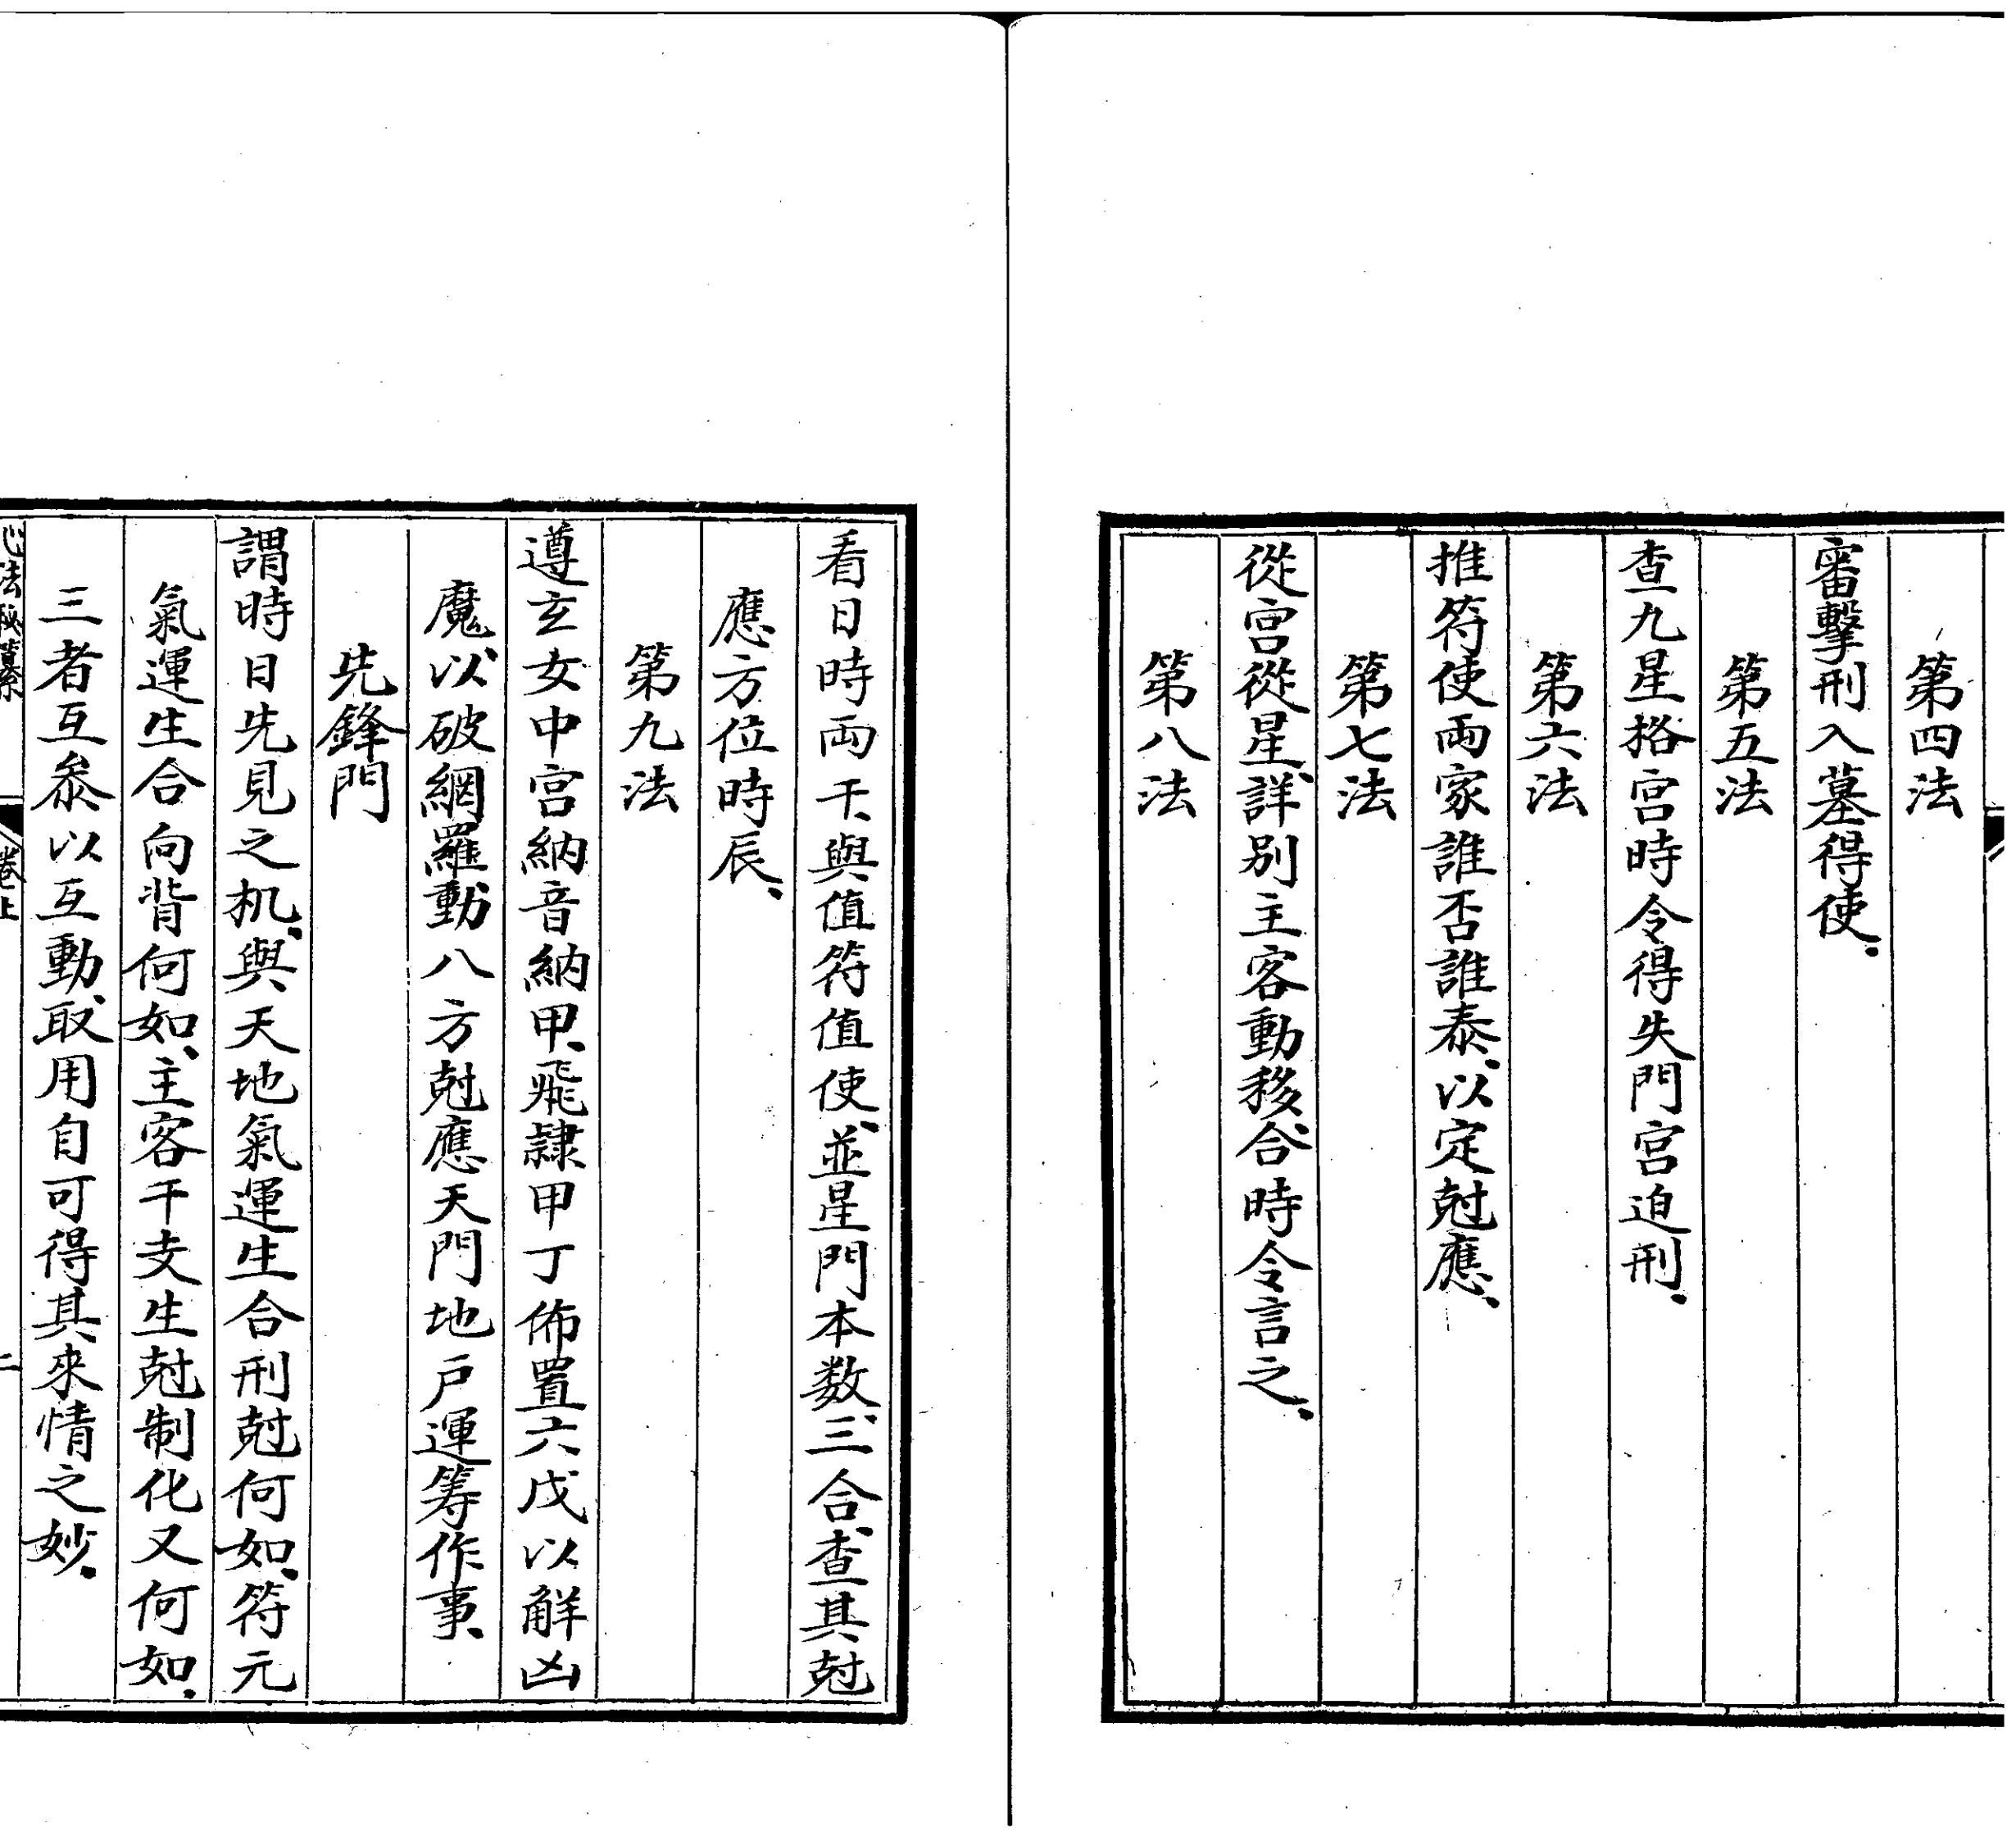 第四法
審擊刑入墓得使、
第五法
查九星格宮時令得失門宮迫刑、
第六法
推符使兩家誰否誰泰、以定尅應、
第七法
從宮從星、詳別主客動移、合時令言之、
第八法
看日時兩干、與值符值使、並星門本数、三合、查其尅
應方位時辰、
第九法
遵玄女中宮納音納甲、飛隷甲丁佈置六戊以觧凶
魔、以破網羅動八方尅應天門地户運筹作事、
先鋒門
謂時日先見之机、與天地氣運生合刑尅何如、符元
氣運生合向背何如、主客干支生尅制化又何如、
三者互叅以互動、取用自可得其來情之妙、
心法秘纂
卷上
二